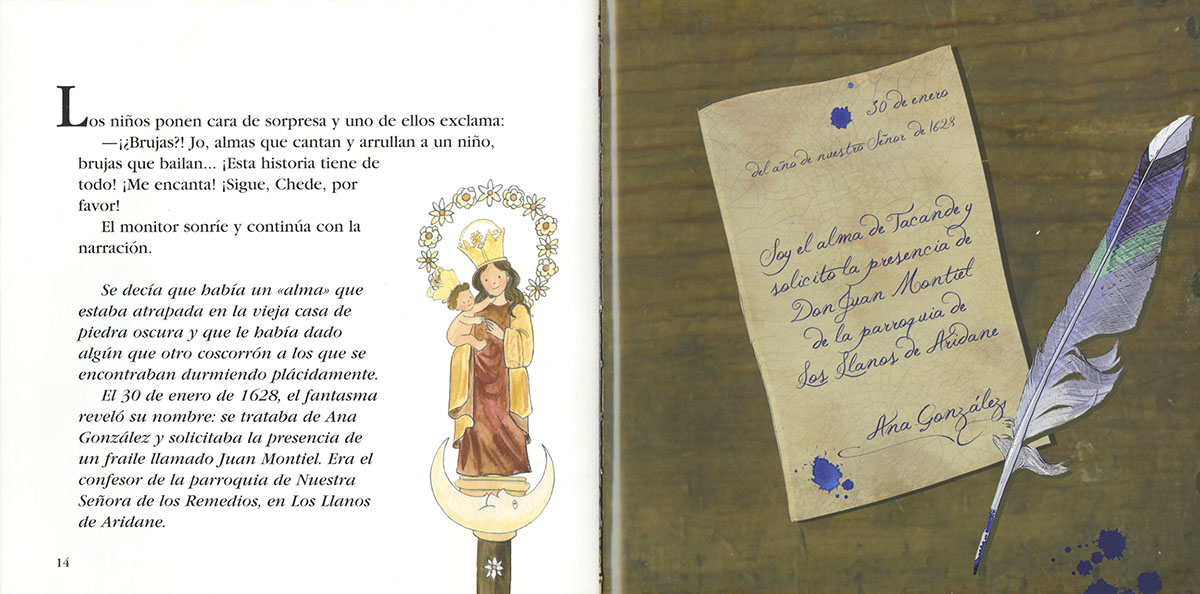 Los niños ponen cara de sorpresa y uno de ellos exclama:
—¡¿Brujas?! Jo, almas que cantan y arrullan a un niño,
brujas que bailan... ¡Esta historia tiene de
todo! ¡Me encanta! ¡Sigue, Chede, por
favor!
El monitor sonríe y continúa con la
narración.
Se decía que había un «alma» que
estaba atrapada en la vieja casa de
piedra oscura y que le había dado
algún que otro coscorrón a los que se
encontraban durmiendo plácidamente.
El 30 de enero de 1628, el fantasma
reveló su nombre: se trataba de Ana
González y solicitaba la presencia de
un fraile llamado Juan Montiel. Era el
confesor de la parroquia de Nuestra
Señora de los Remedios, en Los Llanos
de Aridane.
14
30 de enero
del año de nuestro Señor de 1628
Soy el alma de Tacande y
solicito la presencia de
Don Juan Montiel
de la parroquia de
Los Llanos de Aridane
Ana González